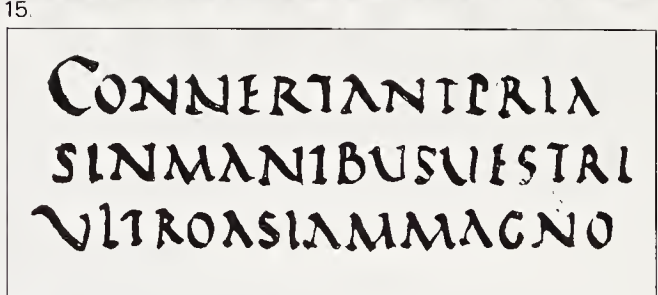 15.
CONNERTANTPRIA
SINMANIBUSUESTRI
ULTROASIAMMAGNO